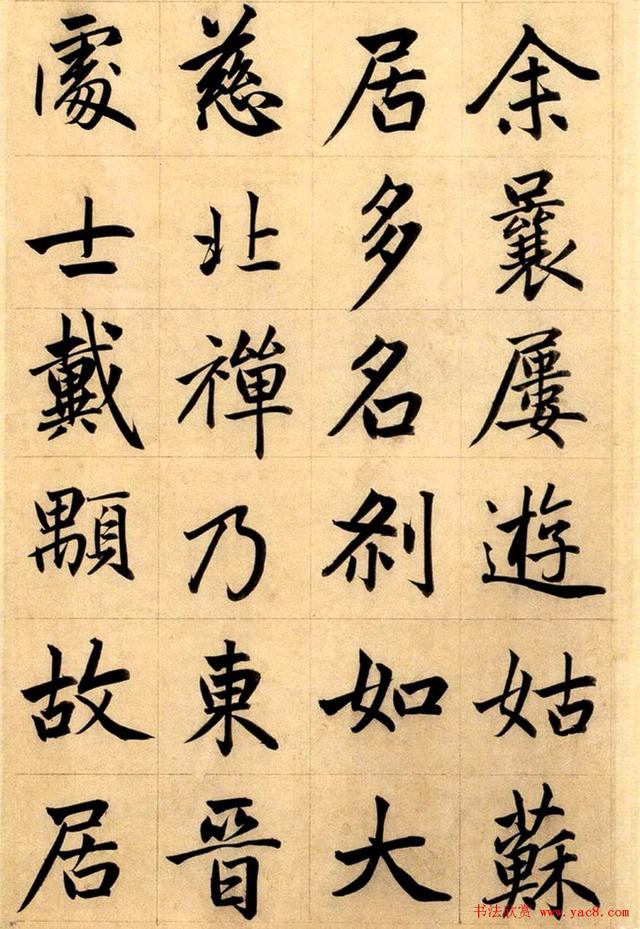 余曩屢遊姑蘇
居多名刹如大
慈北禪乃東晉
處士戴顒故居
书法欣赏 www.yac8.com